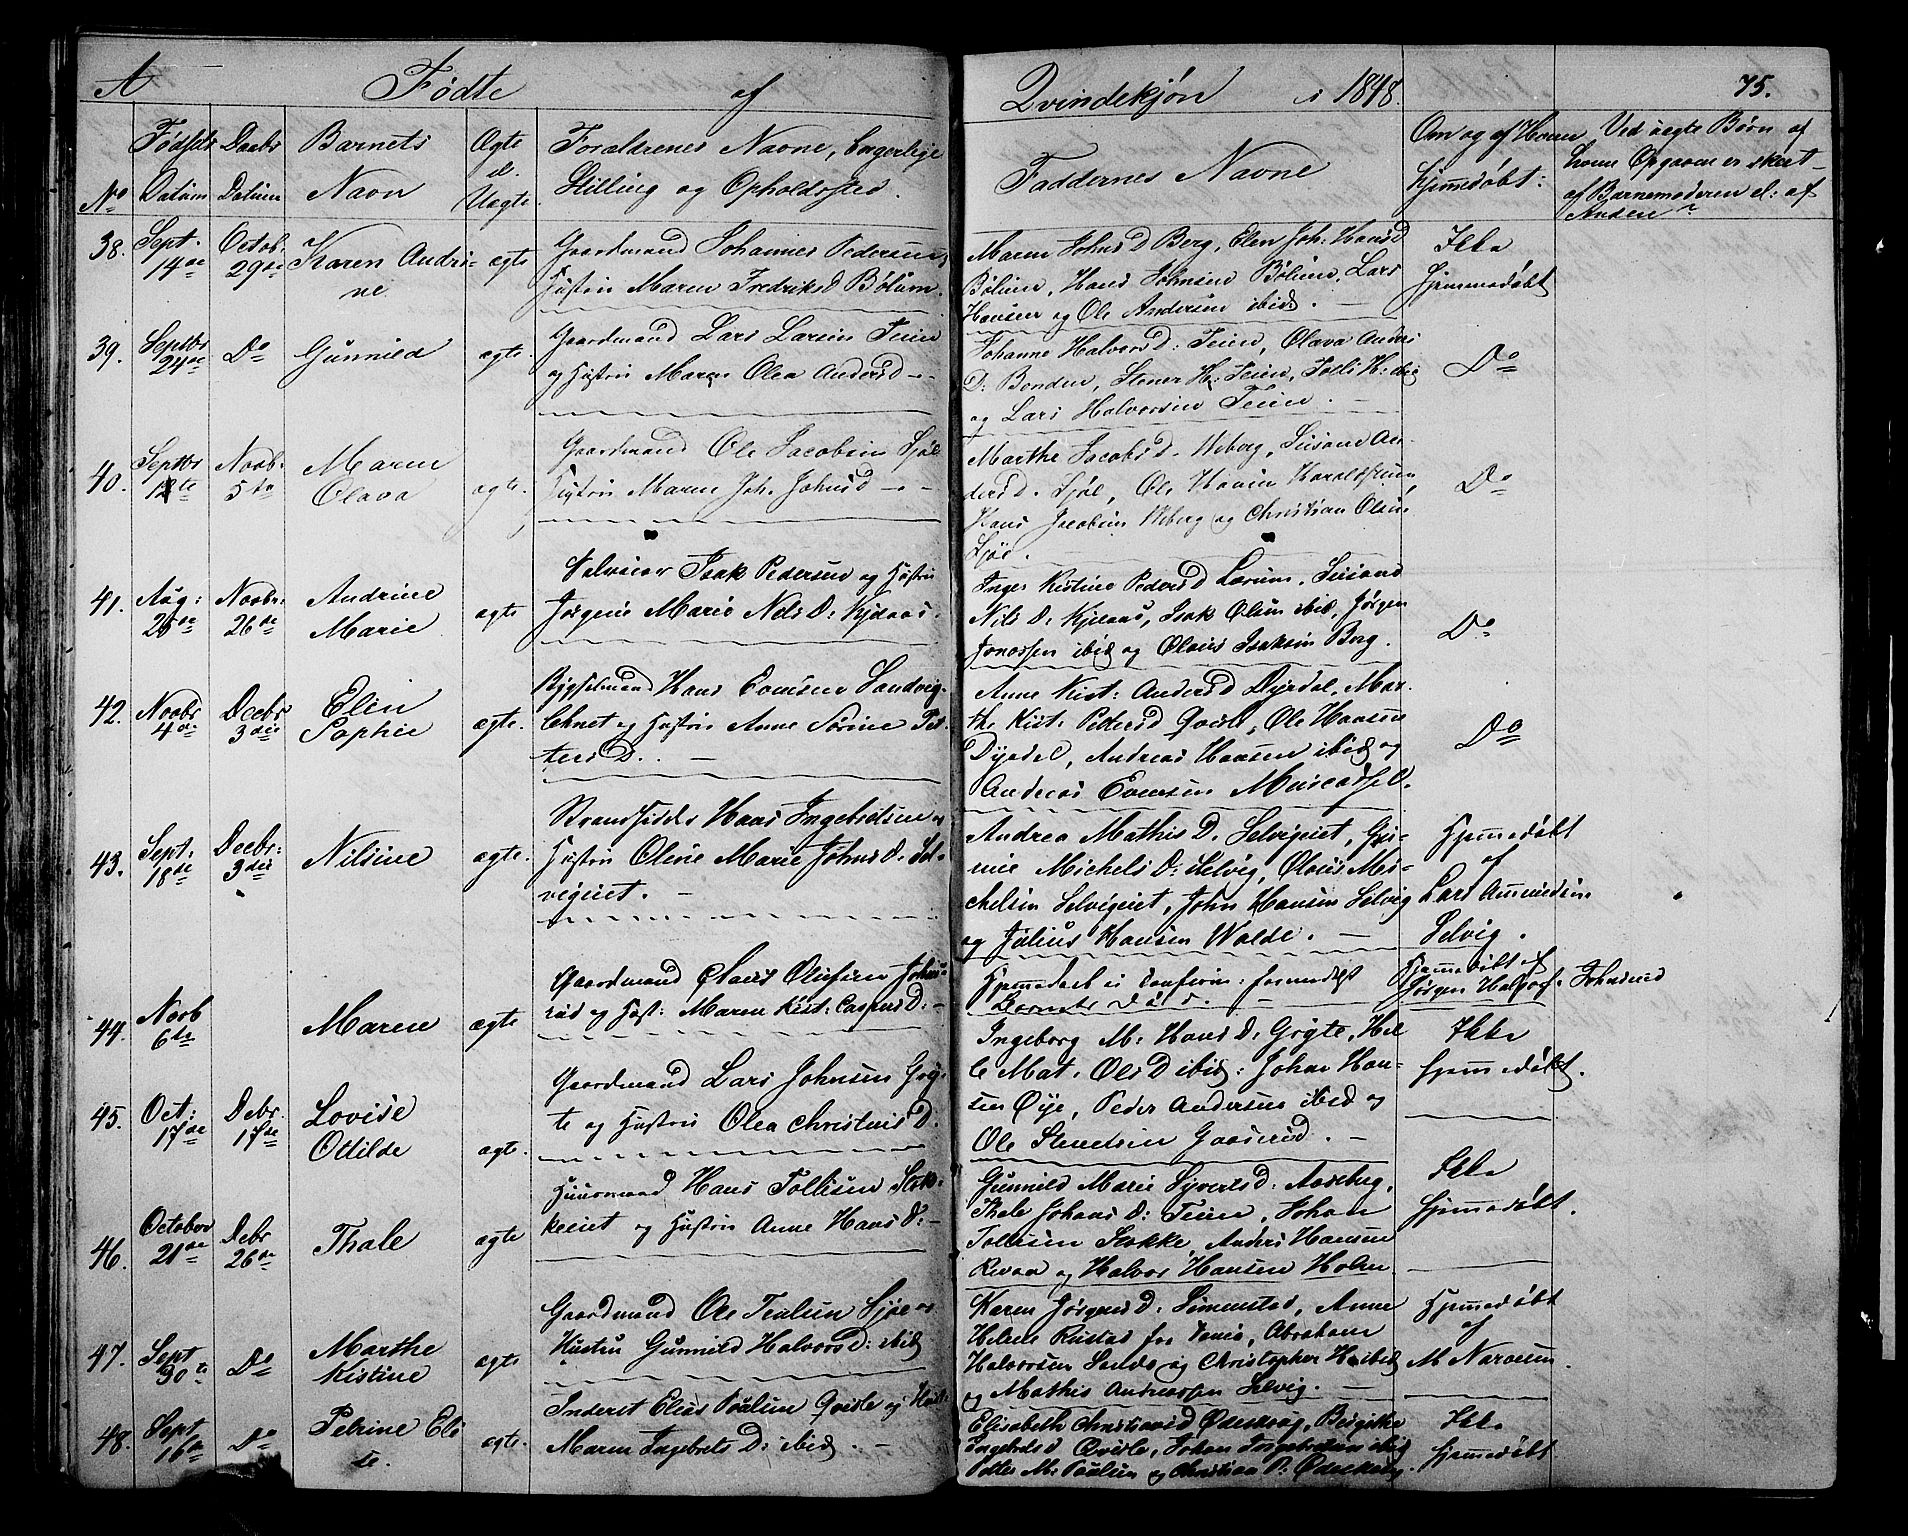 A Fødte af Qvindekjøn i 1848. 75.
No Fødsels Datum Daabs Datum Barnets Navn Ægte el. Uægte Forældrenes Navne, Borgerlige Stilling og Opholdssted. Faddernes Navne Om og af Hvem hjemmedøbt: Ved uægte Børn af hvem Opgaven er skeet af Barnemoderen el: af Anden?
38. Sept. 14de Octob. 29de Karen Andri-
ne. ægte Gaardmand Johannes Pedersen
Hustru Maren Fredriksd Bølum.
Maren Johnsd Berg, Elen Joh. Hansd
Bølum, Hans Johnsen Bølum, Lars
Hansen og Ole Andersen ibid. Ikke
hjemmedøbt
39. Septbr 24de Do Gunnild ægte. Gaardmand Lars Larsen Teien
og Hustru Maren Olea Andersd
Johanne Halvorsd: Teien, Olava Anders
D: Bonden, Stener H: Teien, Tolli H: ibid
og Lars Halvorsen Teien. Do
40. Septbr 12te Novb. 5te Maren
Olava ægte. Gaardmand Ole Jacobsen Sjøl
Hustru Maren Joh. Johnsd
Marthe Jacobsd. Weberg, Susane An-
dersd. Sjøl, Ole Hansen
Hans Jacobsen Weberg og Christian Olsen
Sjøl. Do
41. Aug: 25de Novbr. 26de Andrine
Marie ægte Selveier Isak Pedersen og Hustru
Jørgine Marie Nels D: Kjelaas.
Inger Kistine Pedersd Lerum, Susane
Nils D. Kjelaas, Isak Olsen ibid, Jørgen
Jonassen ibid og Olaus Isaksen Berg. Do
42. Novbr 4de Decbr 3die Elen
Sophie ægte. Bygselmand Hans Evensen Sandvig-
Eknet og Hustru Anne Sørine Pet-
tersd.
Anne Kist: Andersd Dyrdal, Mar-
the Kist: Pedersd Qvisle, Ole Hansen
Dyrdal, Andreas Hansen ibid og
Andreas Evensen Do
43. Sept: 18de Decbr: 3die Nilsine ægte. Strandsidder Hans Ingebretsen og
Hustru Oline Marie Johns D. Sel-
vigeiet.
Andrea Mathis D. Selvigeiet, Gu-
nie Michels D: Selvig, Olaus Mi-
chelsen Selvigeiet, John Hansen Selvig
og Julius Hansen Walde. Hjemmedøbt
af
Lars Amundsen
Selvig.
44. Novb 6te Maren ægte Gaardmand Claus Olufsen Johns-
rud og Hust: Maren Kist: Caspers D:
Hjemmedaab ei Confirm: formedelst
Barnets Død. Hjemmedøbt af
Jørgen Halvors. Johnsrud
45. Oct: 17de Debr. 17de Lovise
Otilde ægte. Gaardmand Lars Johnsen Gryg-
te og Hustru Olea Christens D.
Ingeborg M: Hans D: Grygte, Hel-
le Mat. Ols D ibid: Johan Han-
sen Øye, Peder Andersen ibid og
Ole Steensen Gaaserud. Ikke
hjemmedøbt.
46. October 21de Debr 26de Thale ægte Huusmand Hans Tollisen Stok-
keeiet og Hustru Anne Hans D:
Gunnild Marie Syverts D: Aaseberg,
Thale Johans D: Teien, Johan
Tollisen Stokke, Anders Hansen
Revaa og Halvor Hansen Holm Ikke
hjemmedøbt.
47. Sept 30te Do Marthe
Kistine ægte Gaardmand Ole Poulsen Sjøl og
Hustru Gunnild Halvors D: ibid
Karen Jørgens D: Simenstad, Anne
Helene Rustad for Venie, Abraham
Halvorsen Sande og Christopher H: ibid
og Mathis Andreassen Selvig. Hjemmedøbt
af
M. Narvesen.
48. Sept 16de Do Petrine Eli
se. ægte. Inderst Elias Poulsen Qvisle og Hust:
Maren Ingebrets D: ibid.
Elisabeth Christiansd Ødeskoug, Birgithe
Ingebretsd Qvisle, Johan Ingebretsen ibid
Petter M: Poulsen og Christian P: Ødeskoug. Ikke
hjemmedøbt